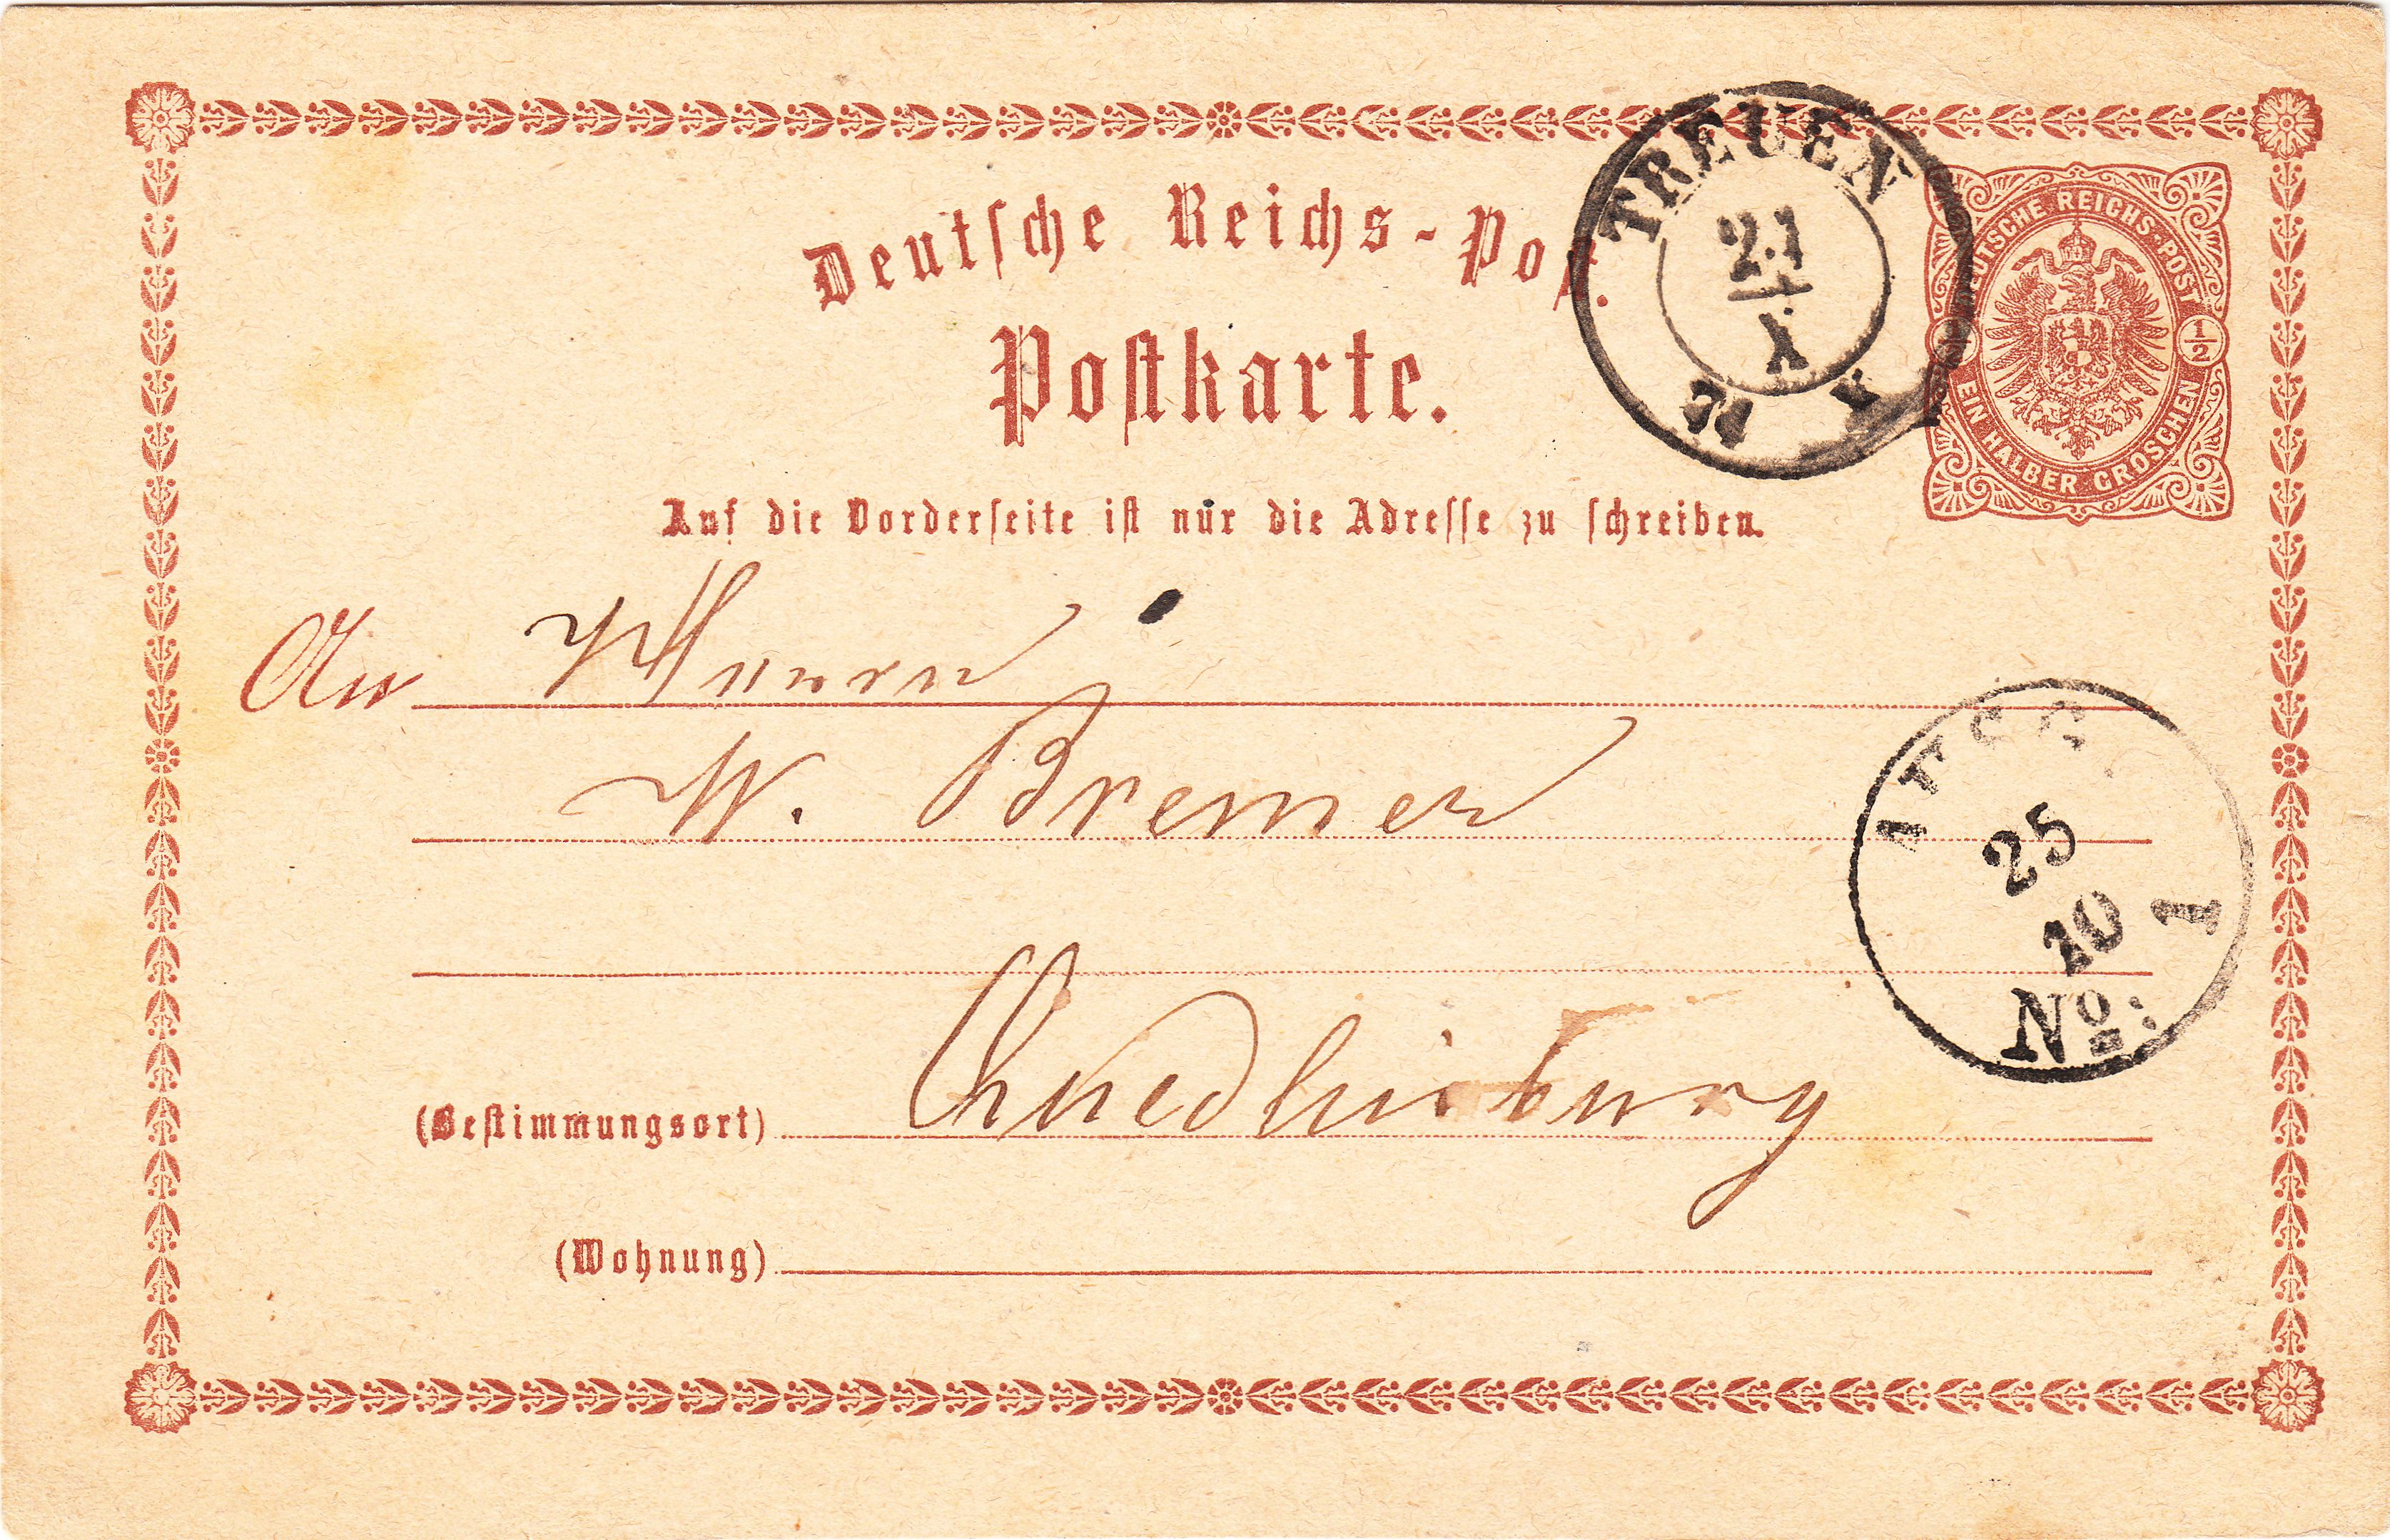 Deutsche Reichs-Post.
Postkarte.
Auf die Vorderseite ist nur die Adresse zu schreiben.
TREUEN
21
X
DEUTSCHE REICHS-POST
1/2
EIN HALBER GROSCHEN
An Herrn
W. Bremer
25
10
1
No:
(Bestimmungsort) Quedlinburg
(Wohnung)